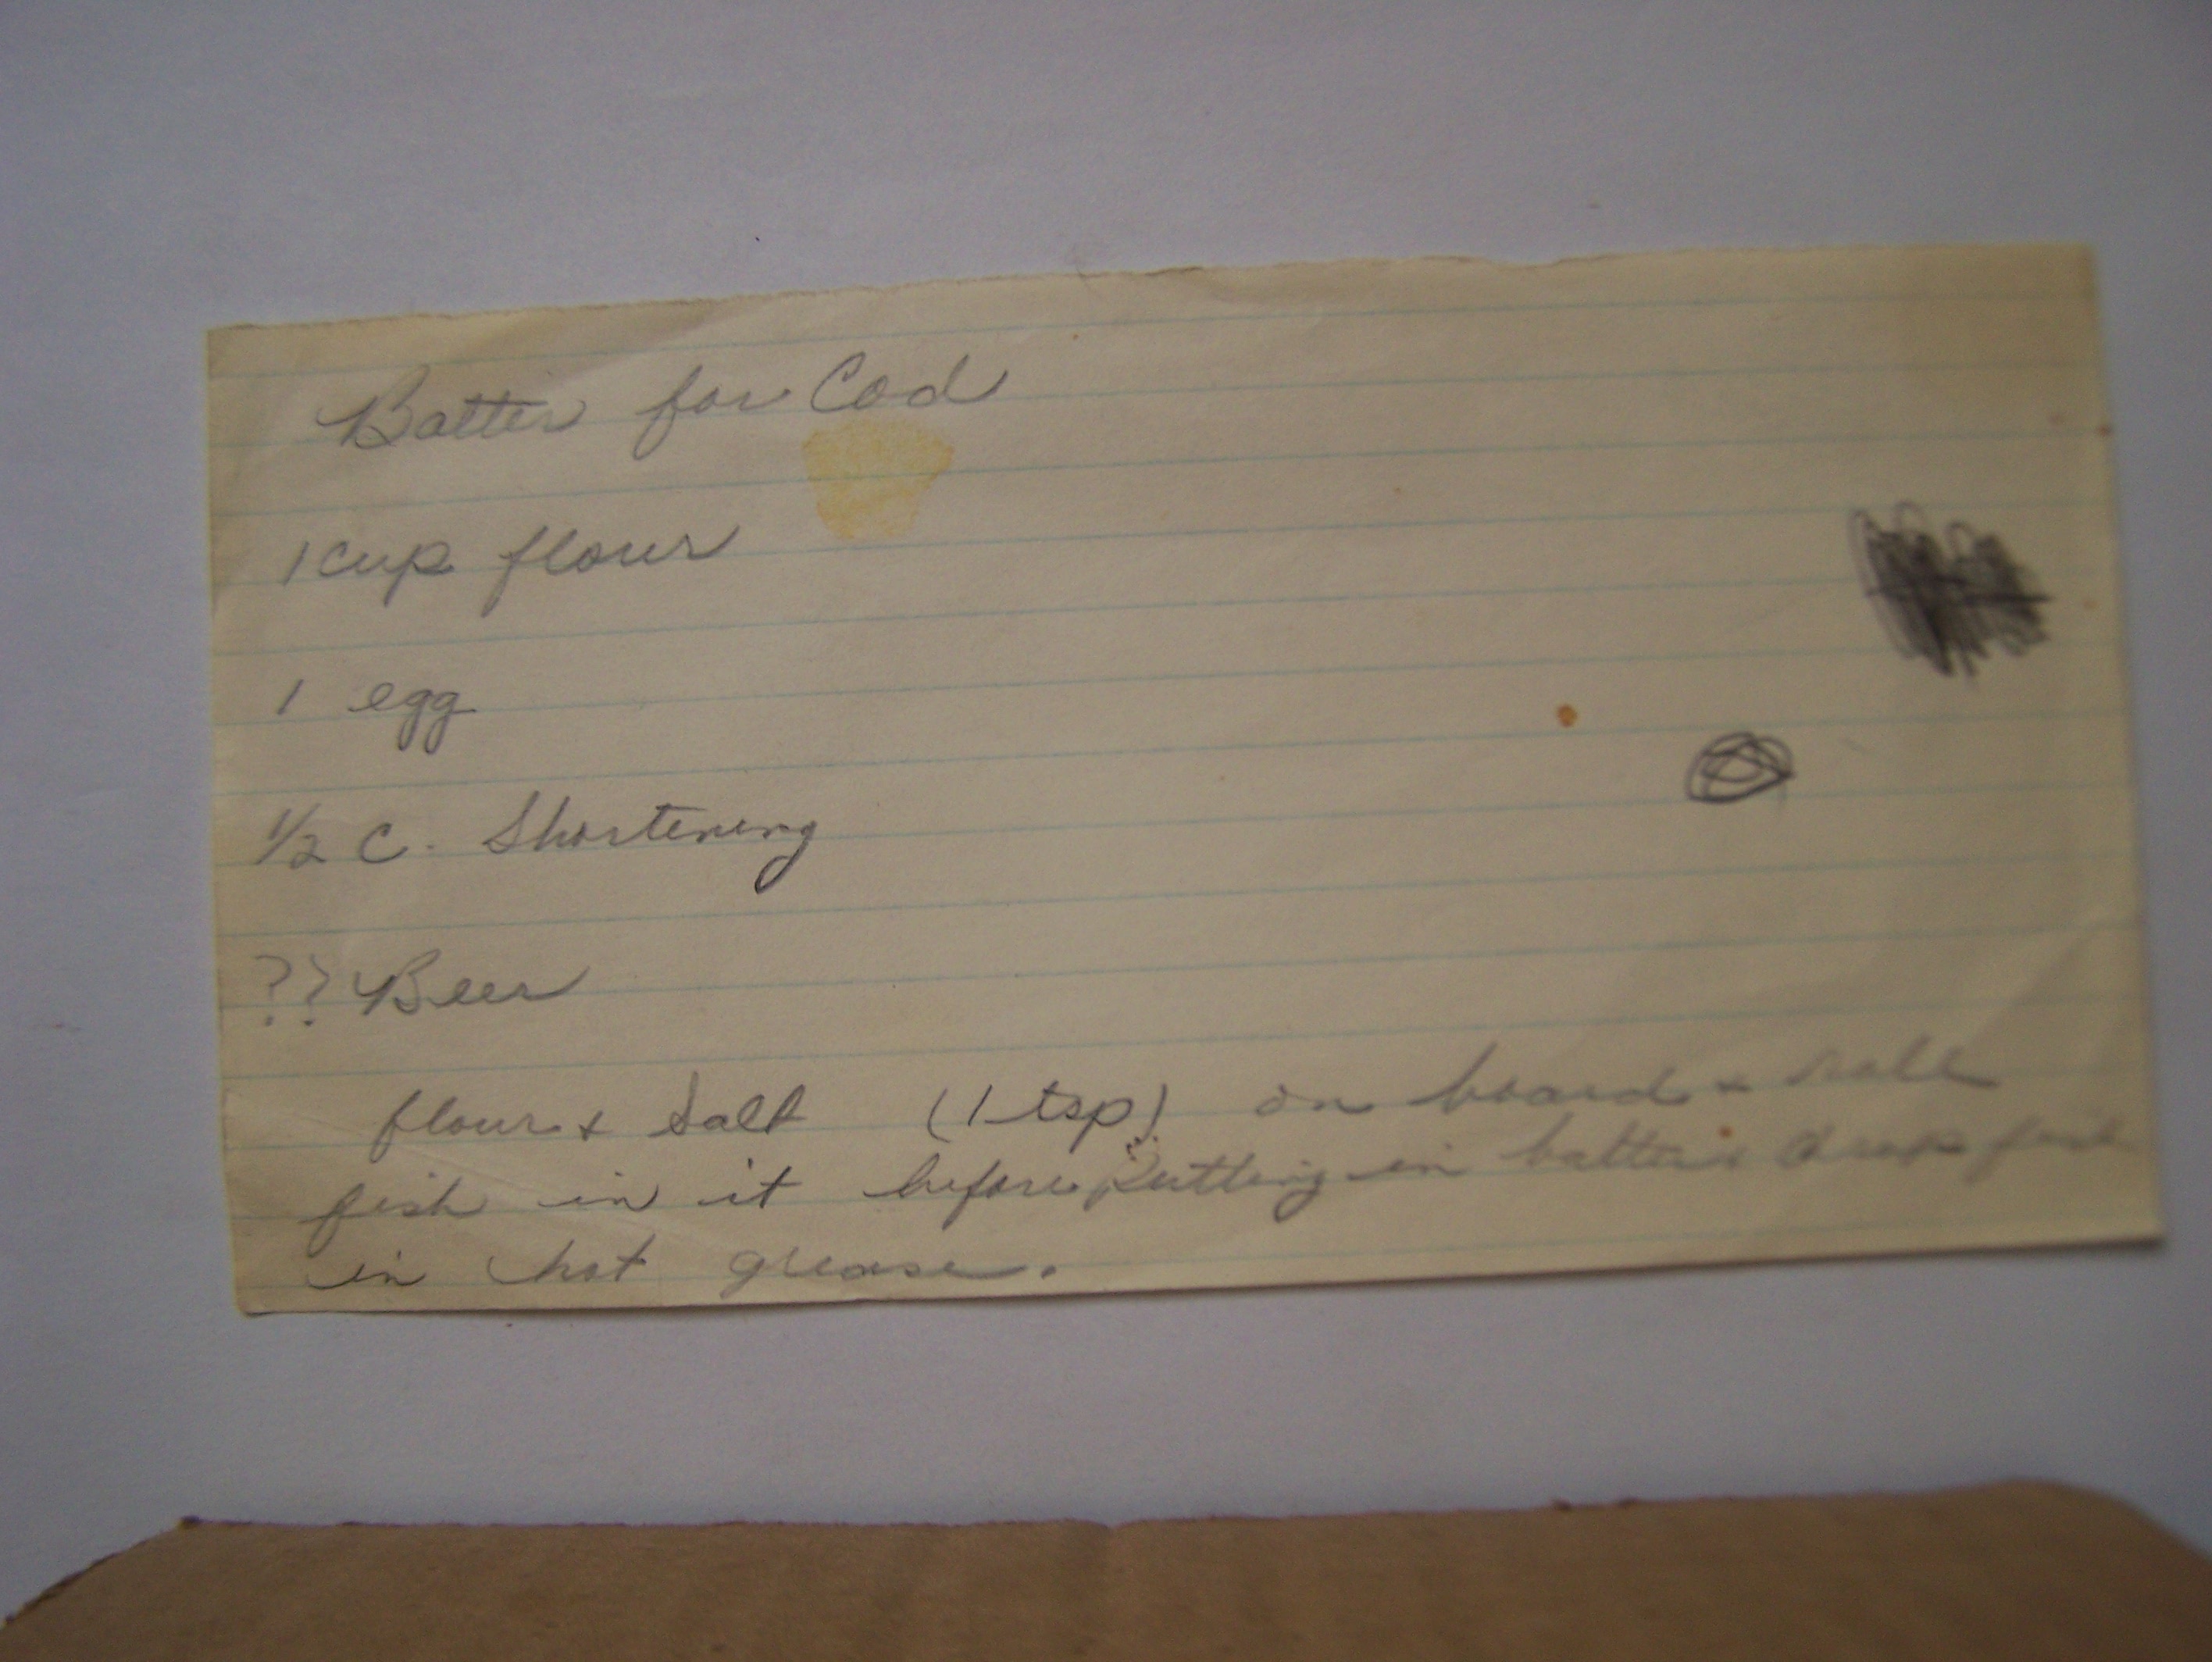 Batter for Cod
1 cup flour
1 egg
1/2 c. Shortening
?? Beer
flour & Salt (1 tsp) on board & roll
fish in it before putting in batter & drop fish
in hot grease.